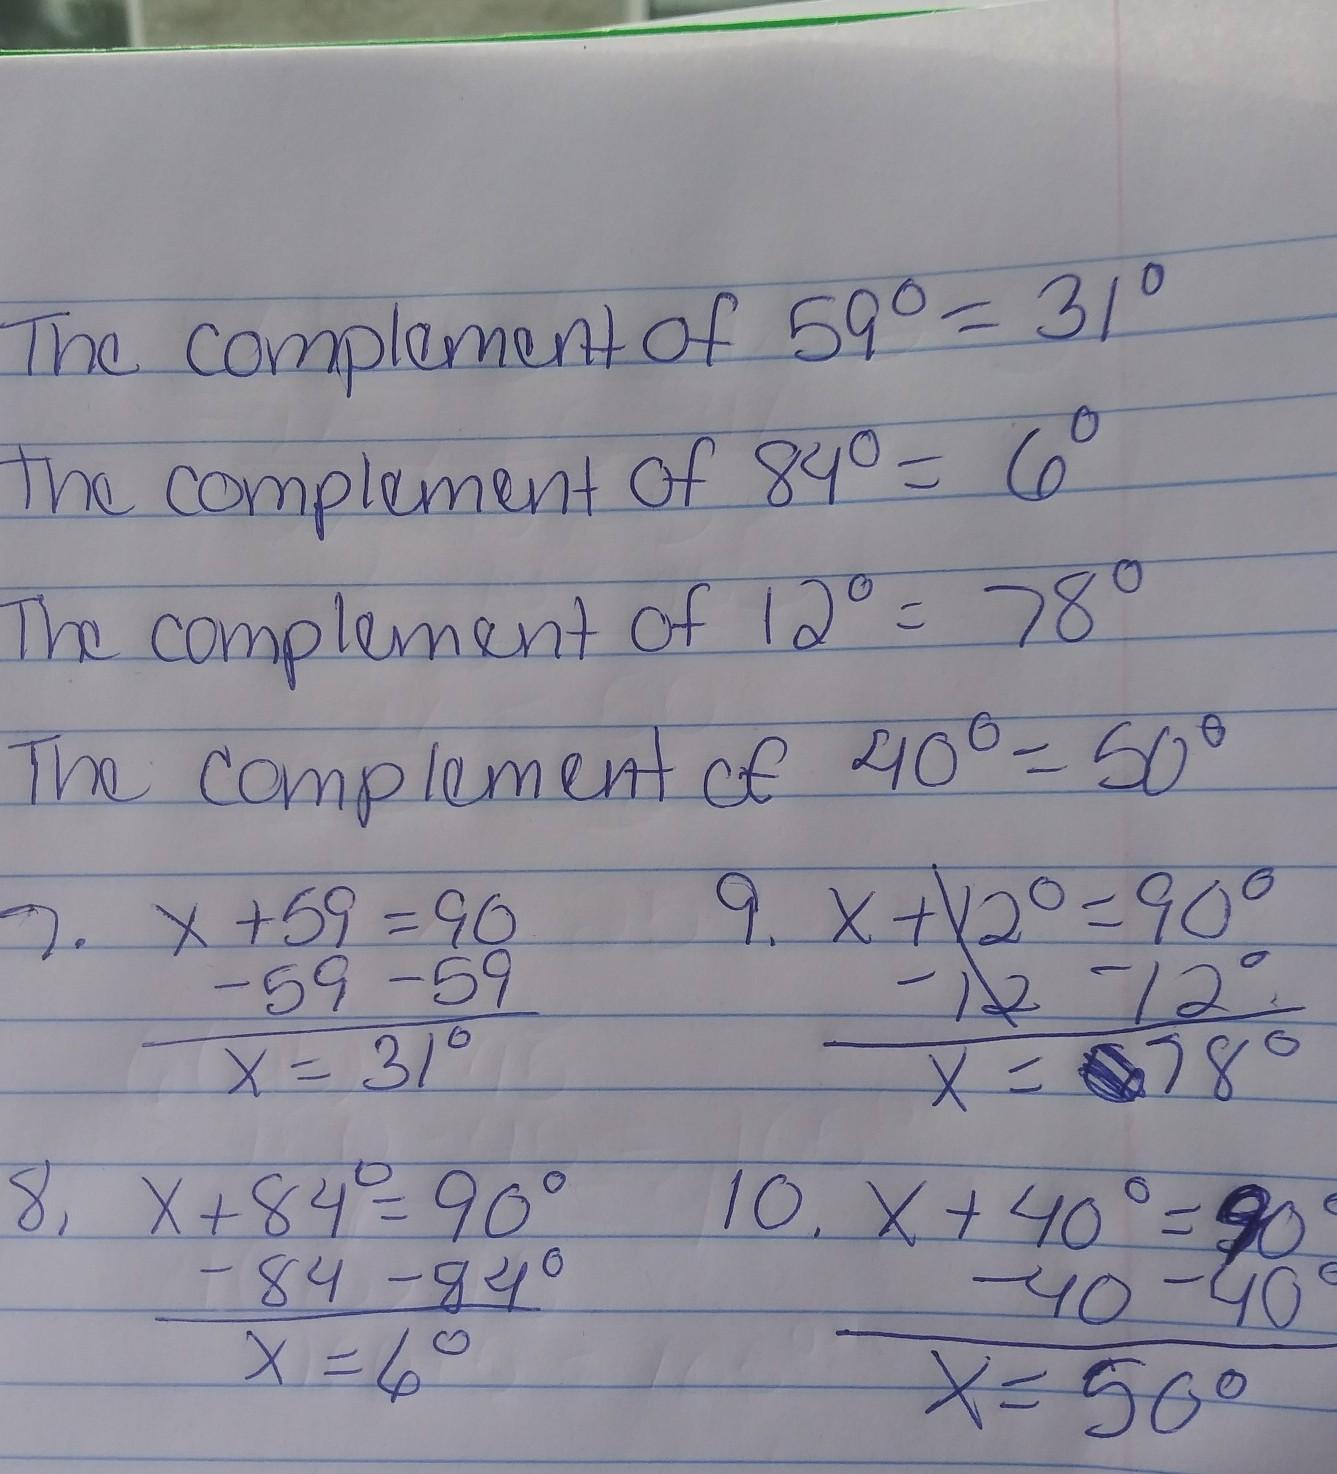 The complement of 59° = 31°
The complement of 84° = 6°
The complement of 12° = 78°
The complement of 40° = 50°
7. x + 59 = 90
-59 -59
x = 31°
8. x + 84° = 90°
-84 -84°
x = 6°
9. x + 12° = 90°
-12 -12°
x = 78°
10. x + 40° = 90°
-40 -40°
x = 50°